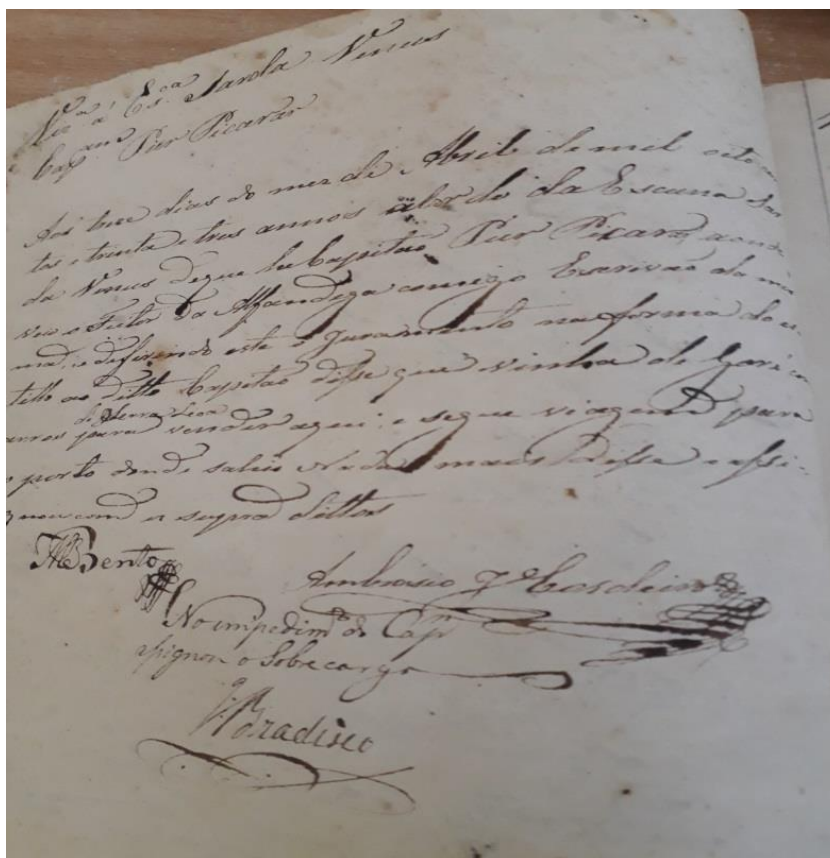 Viz.ª á Es.cª Sarda Venus
Cap.am Pier Picarar
Aos tres dias do mez de Abril de mil oito cen
tos e trinta e tres annos abordo da Escuna Sar
da Venus de que he Cappitaõ Pier Picarar, aonde
veio o Feitor da Alfandega comigo Escrivaõ da mes
ma, e deferindo este o Juramento na forma do es
tillo ao ditto Cappitaõ disse que vinha de Goré com
de Serra Leoa
para vender aqui, e segue viagem para
o porto donde sahio e Nada mais disse e assi-
gnou com os supra dittos
Bento
Ambrosio J.e Cordeiro
No impedim.to do Cap.m
assignou o Sobrecarga